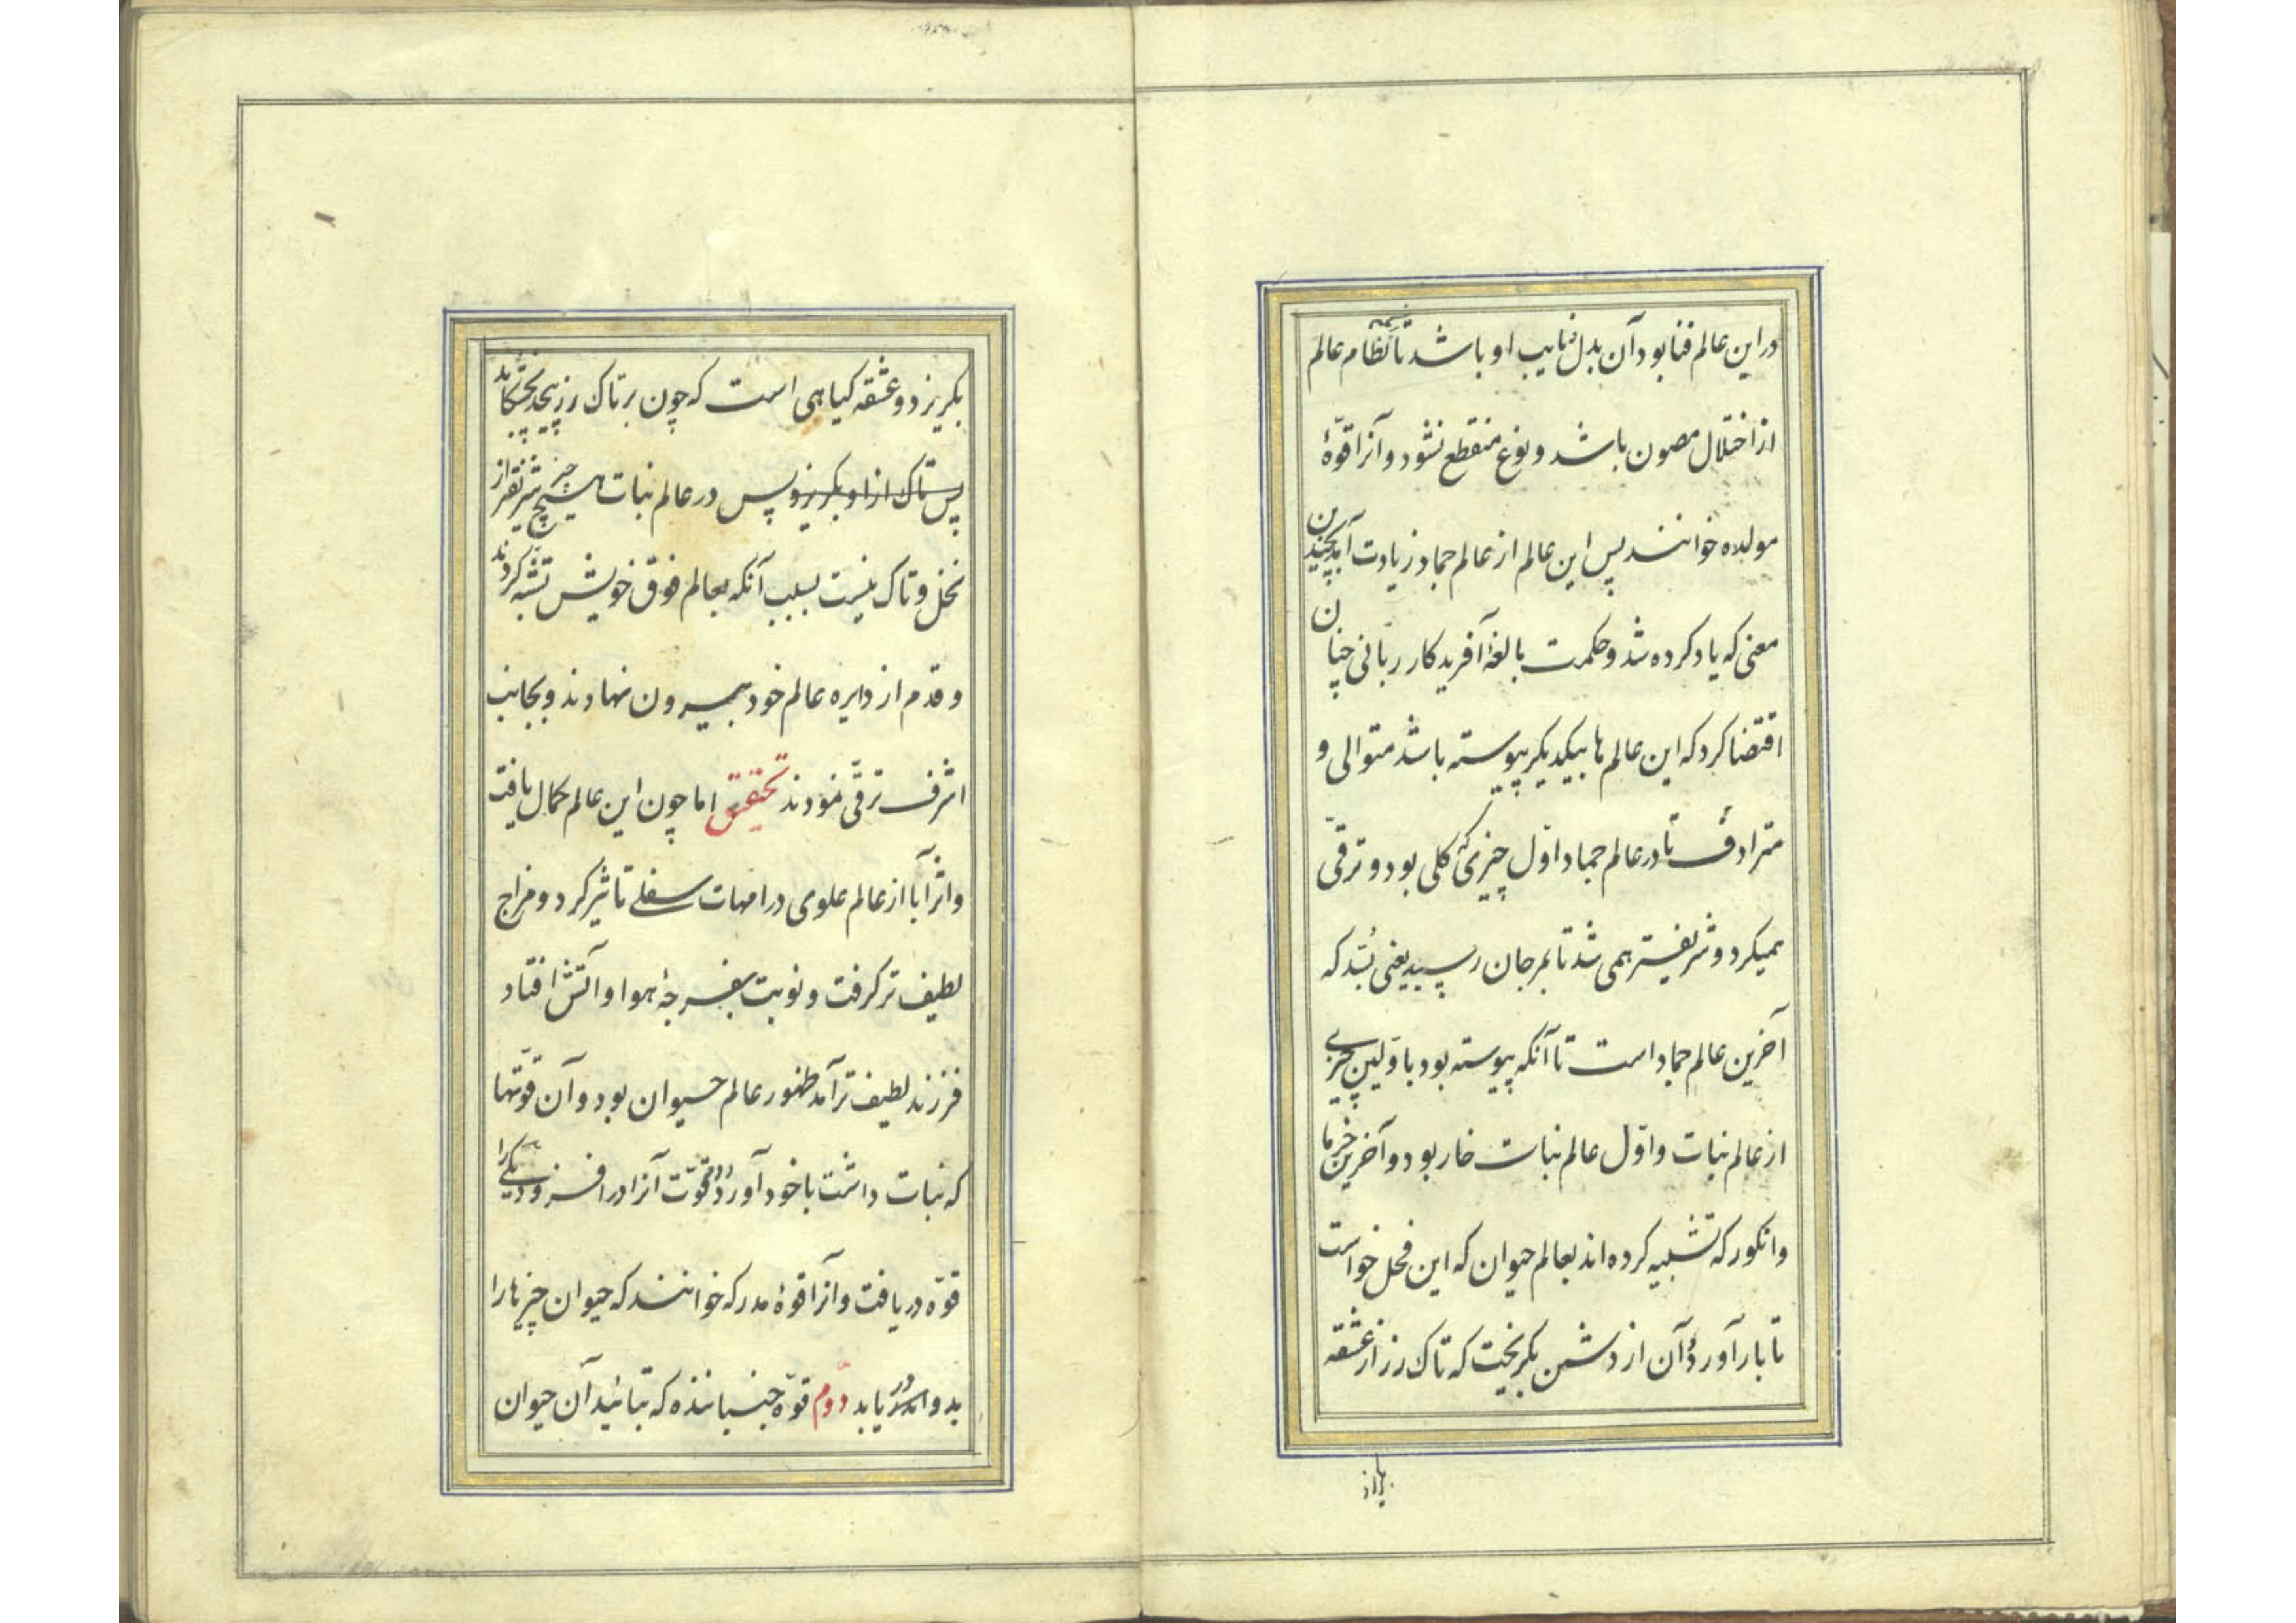 در این عالم فنا بود آن بدل نایب او باشد تا نظام عالم
از اختلال مصون باشد و نوع منقطع نشود و آنرا قوّهٔ
مولده خوانند پس این عالم از عالم جماد زیادت آمد بچندین
معنی که یاد کرده شد و حکمت بالغهٔ آفریدکار ربانی چنان
اقتضا کرد که این عالم ها بیکدیکر پیوسته باشد متوالی و
مترادف تا در عالم جماد اوّل چیزی که کلی بود و ترقّی
همیکرد و شریفیتر همی شد تا بمرجان رسید یعنی بُسّد که
آخرین عالم جماد است تا آنکه پیوسته بود باوّلین چیزی
از عالم نبات و اوّل عالم نبات خار بود و آخرین خرما
و انکور که تشبیه کرده اند بعالم حیوان که این فحل خواست
تا بار آورد و آن از دشمن بکریخت که تاک رز از عشقه
بکریزد و عشقه کیاهی است که چون بر تاک رز پیچد بخشکاند
پس تاک از او بکریزد پس در عالم نبات هیچ چیز شریفتر از
نخل و تاک نیست بسبب آنکه بعالم فوق خویش تشبّه کردند
و قدم از دایره عالم خود بیرون نهادند و بجانب
اشرف ترقّی نمودند تحقیق اما چون این عالم کمال یافت
و اثر آبا از عالم علوی در امهات سفلے تاثیر کرد و مزاج
لطیف تر کرفت و نوبت بفرجهٔ هوا و آتش افتاد
فرزند لطیف تر آمد ظهور عالم حیوان بود و آن قوّتها
که نبات داشت با خود آورد و دو قوّت آنرا در افزود یکے را
قوّه دریافت و آنرا قوهٔ مدرکه خوانند که حیوان چیزها را
بدو در یابد دوّم قوّه جنباننده که بتائید آن حیوان